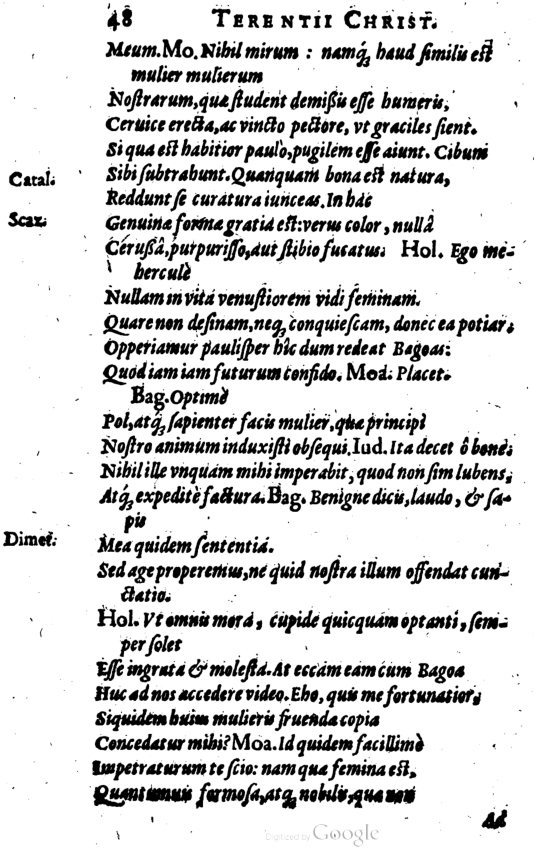 48 TERENTII CHRIST.
Meum. Mo. Nihil mirum : namq́ꝫ haud ſimilis eſt
mulier mulierum
Noſtrarum, quæ ſtudent demißis eſſe humeris,
Ceruice erecta, ac vincto pectore, vt graciles ſient.
Si qua eſt habitior paulò, pugilem eſſe aiunt. Cibum
Catal. Sibi ſubtrahunt. Quanquam bona eſt natura,
Reddunt ſe curatura iunceas. In hac
Scaz. Genuina formæ gratia eſt: verus color, nullâ
Cerußâ, purpuriſſo, aut ſtibio fucatus. Hol. Ego me-
herculè
Nullam in vitâ venuſtiorem vidi feminam.
Quare non deſinam, neq́ꝫ conquieſcam, donec ea potiar.
Opperiamur pauliſper hîc dum redeat Bagoas:
Quod iam iam futurum confido. Mod. Placet.
Bag. Optimè
Pol, atq́ꝫ ſapienter facis mulier, quæ principi
Noſtro animum induxiſti obſequi. Iud. Ita decet ô bone.
Nihil ille vnquam mihi imperabit, quod non ſim lubens,
Atq́ꝫ expeditè factura. Bag. Benigne dicis, laudo, & ſa-
pis
Dimet. Mea quidem ſententiâ.
Sed age properemus, ne quid noſtra illum offendat cun-
ctatio.
Hol. Vt omnis mora, cupidè quicquam optanti, ſem-
per ſolet
Eſſe ingrata & moleſta. At eccam eam cum Bagoa
Huc ad nos accedere video. Eho, quis me fortunatior,
Siquidem huius mulieris fruenda copia
Concedatur mihi? Moa. Id quidem facillimè
Impetraturum te ſcio: nam quæ femina eſt,
Quantumuis formoſa, atq́ꝫ nobilis, quæ non
Ad
Digitized by Google